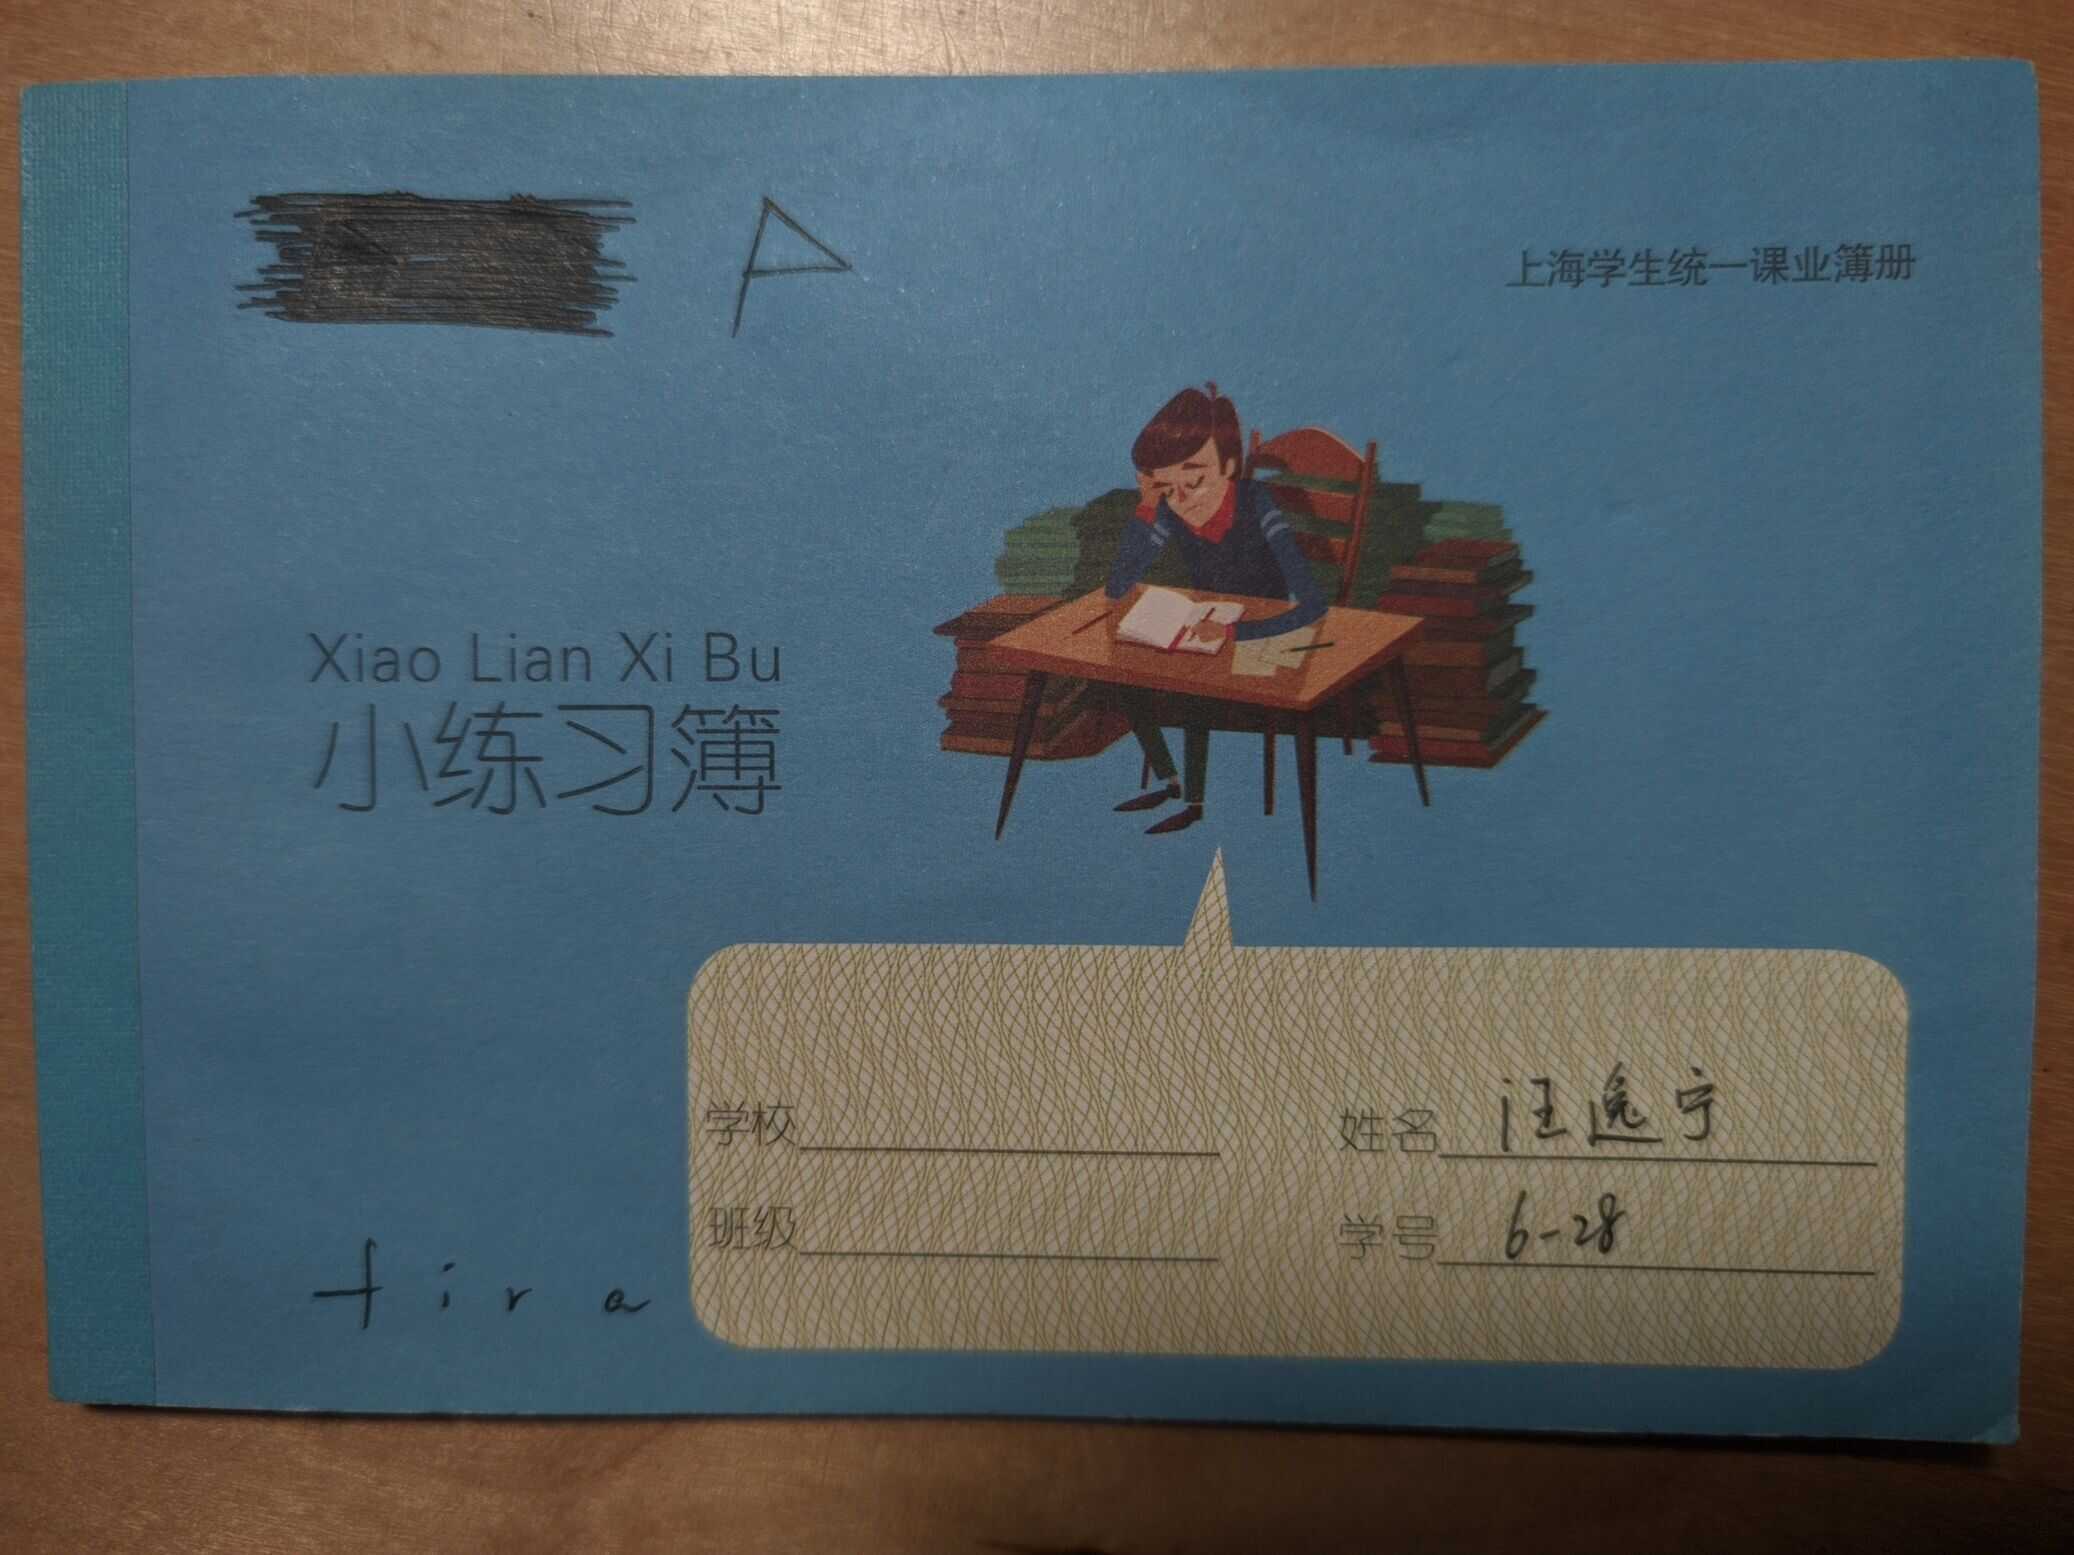 P
上海学生统一课业簿册
Xiao Lian Xi Bu
小练习簿
学校
姓名 汪逸宁
班级
学号 6-28